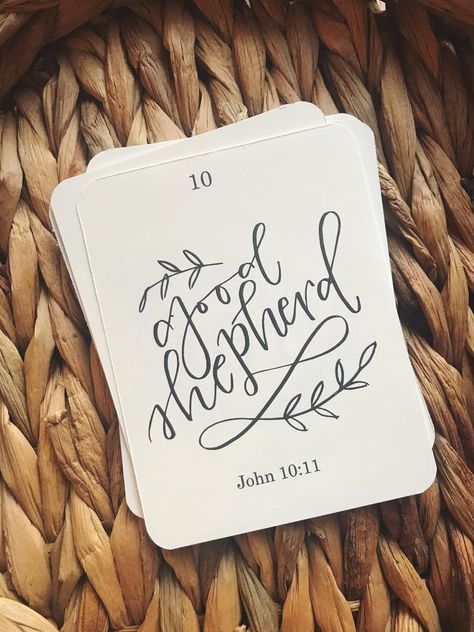 10
good
shepherd
John 10:11